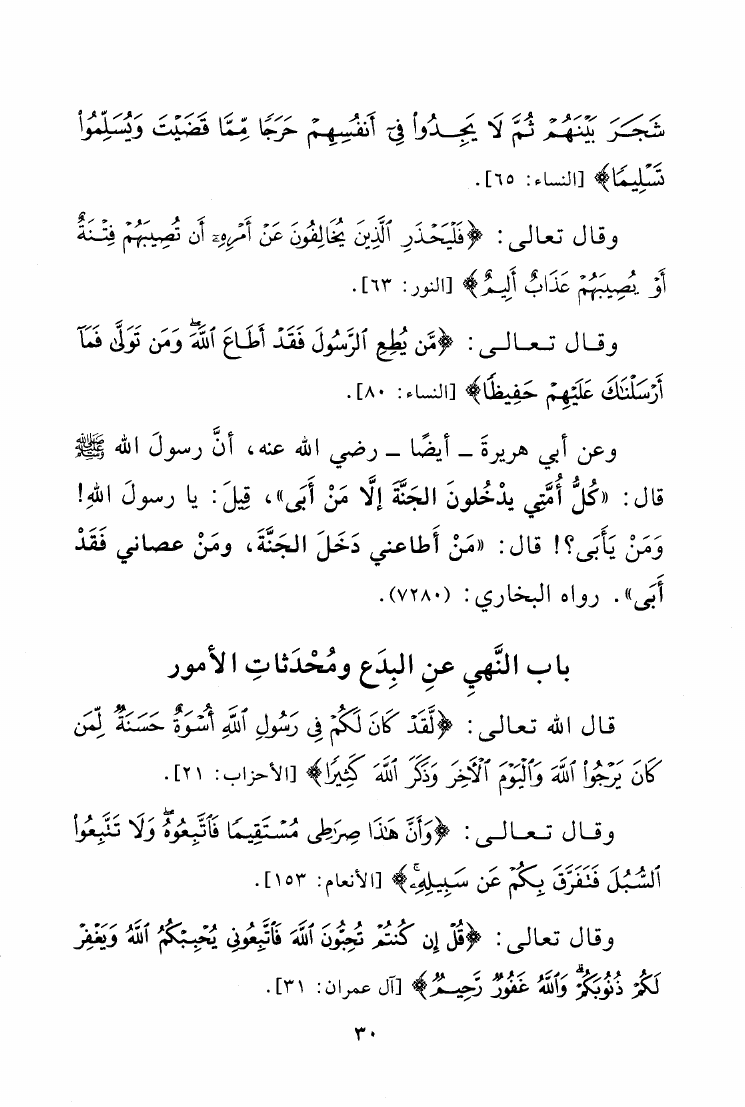 شَجَرَ بَيْنَهُمْ ثُمَّ لَا يَجِدُوا۟ فِىٓ أَنفُسِهِمْ حَرَجًا مِّمَّا قَضَيْتَ وَيُسَلِّمُوا۟
تَسْلِيمًا﴾ [النساء: ٦٥].
وقال تعالى: ﴿فَلْيَحْذَرِ ٱلَّذِينَ يُخَالِفُونَ عَنْ أَمْرِهِۦٓ أَن تُصِيبَهُمْ فِتْنَةٌ
أَوْ يُصِيبَهُمْ عَذَابٌ أَلِيمٌ﴾ [النور: ٦٣].
وقال تعالى: ﴿مَّن يُطِعِ ٱلرَّسُولَ فَقَدْ أَطَاعَ ٱللَّهَ ۖ وَمَن تَوَلَّىٰ فَمَآ
أَرْسَلْنَٰكَ عَلَيْهِمْ حَفِيظًا﴾ [النساء: ٨٠].
وعن أبي هريرةَ ـ أيضًا ـ رضي الله عنه، أنَّ رسولَ الله ﷺ
قال: «كُلُّ أُمَّتِي يدْخُلونَ الجَنَّةَ إلَّا مَنْ أَبَى»، قِيلَ: يا رسولَ اللهِ!
وَمَنْ يَأْبَى؟! قال: «مَنْ أطاعني دَخَلَ الجَنَّةَ، ومَنْ عصاني فَقَدْ
أَبَى». رواه البخاري: (٧٢٨٠).
باب النَّهيِ عنِ البِدَع ومُحْدَثاتِ الأمور
قال الله تعالى: ﴿لَّقَدْ كَانَ لَكُمْ فِى رَسُولِ ٱللَّهِ أُسْوَةٌ حَسَنَةٌ لِّمَن
كَانَ يَرْجُوا۟ ٱللَّهَ وَٱلْيَوْمَ ٱلْءَاخِرَ وَذَكَرَ ٱللَّهَ كَثِيرًا﴾ [الأحزاب: ٢١].
وقال تعالى: ﴿وَأَنَّ هَٰذَا صِرَٰطِى مُسْتَقِيمًا فَٱتَّبِعُوهُ ۖ وَلَا تَتَّبِعُوا۟
ٱلسُّبُلَ فَتَفَرَّقَ بِكُمْ عَن سَبِيلِهِۦ ۚ﴾ [الأنعام: ١٥٣].
وقال تعالى: ﴿قُلْ إِن كُنتُمْ تُحِبُّونَ ٱللَّهَ فَٱتَّبِعُونِى يُحْبِبْكُمُ ٱللَّهُ وَيَغْفِرْ
لَكُمْ ذُنُوبَكُمْ ۗ وَٱللَّهُ غَفُورٌ رَّحِيمٌ﴾ [آل عمران: ٣١].
٣٠